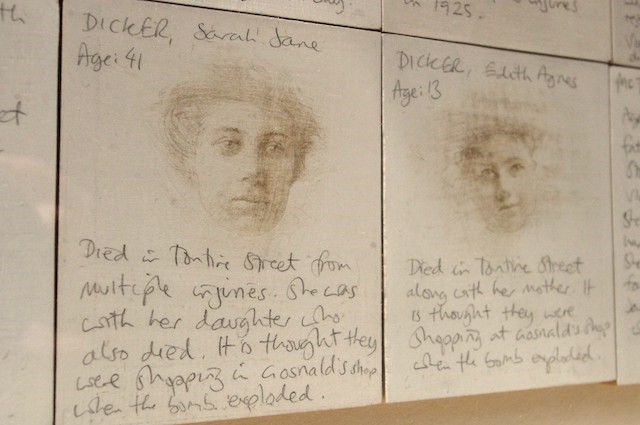 in 1925.
DICKER, Sarah Jane
Age: 41
Died in Tontine Street from
multiple injuries. She was
with her daughter who
also died. It is thought they
were shopping in Gosnald's shop
when the bomb exploded.
DICKER, Edith Agnes
Age: 13
Died in Tontine Street
along with her mother. It
is thought they were
shopping at Gosnald's shop
when the bomb exploded.